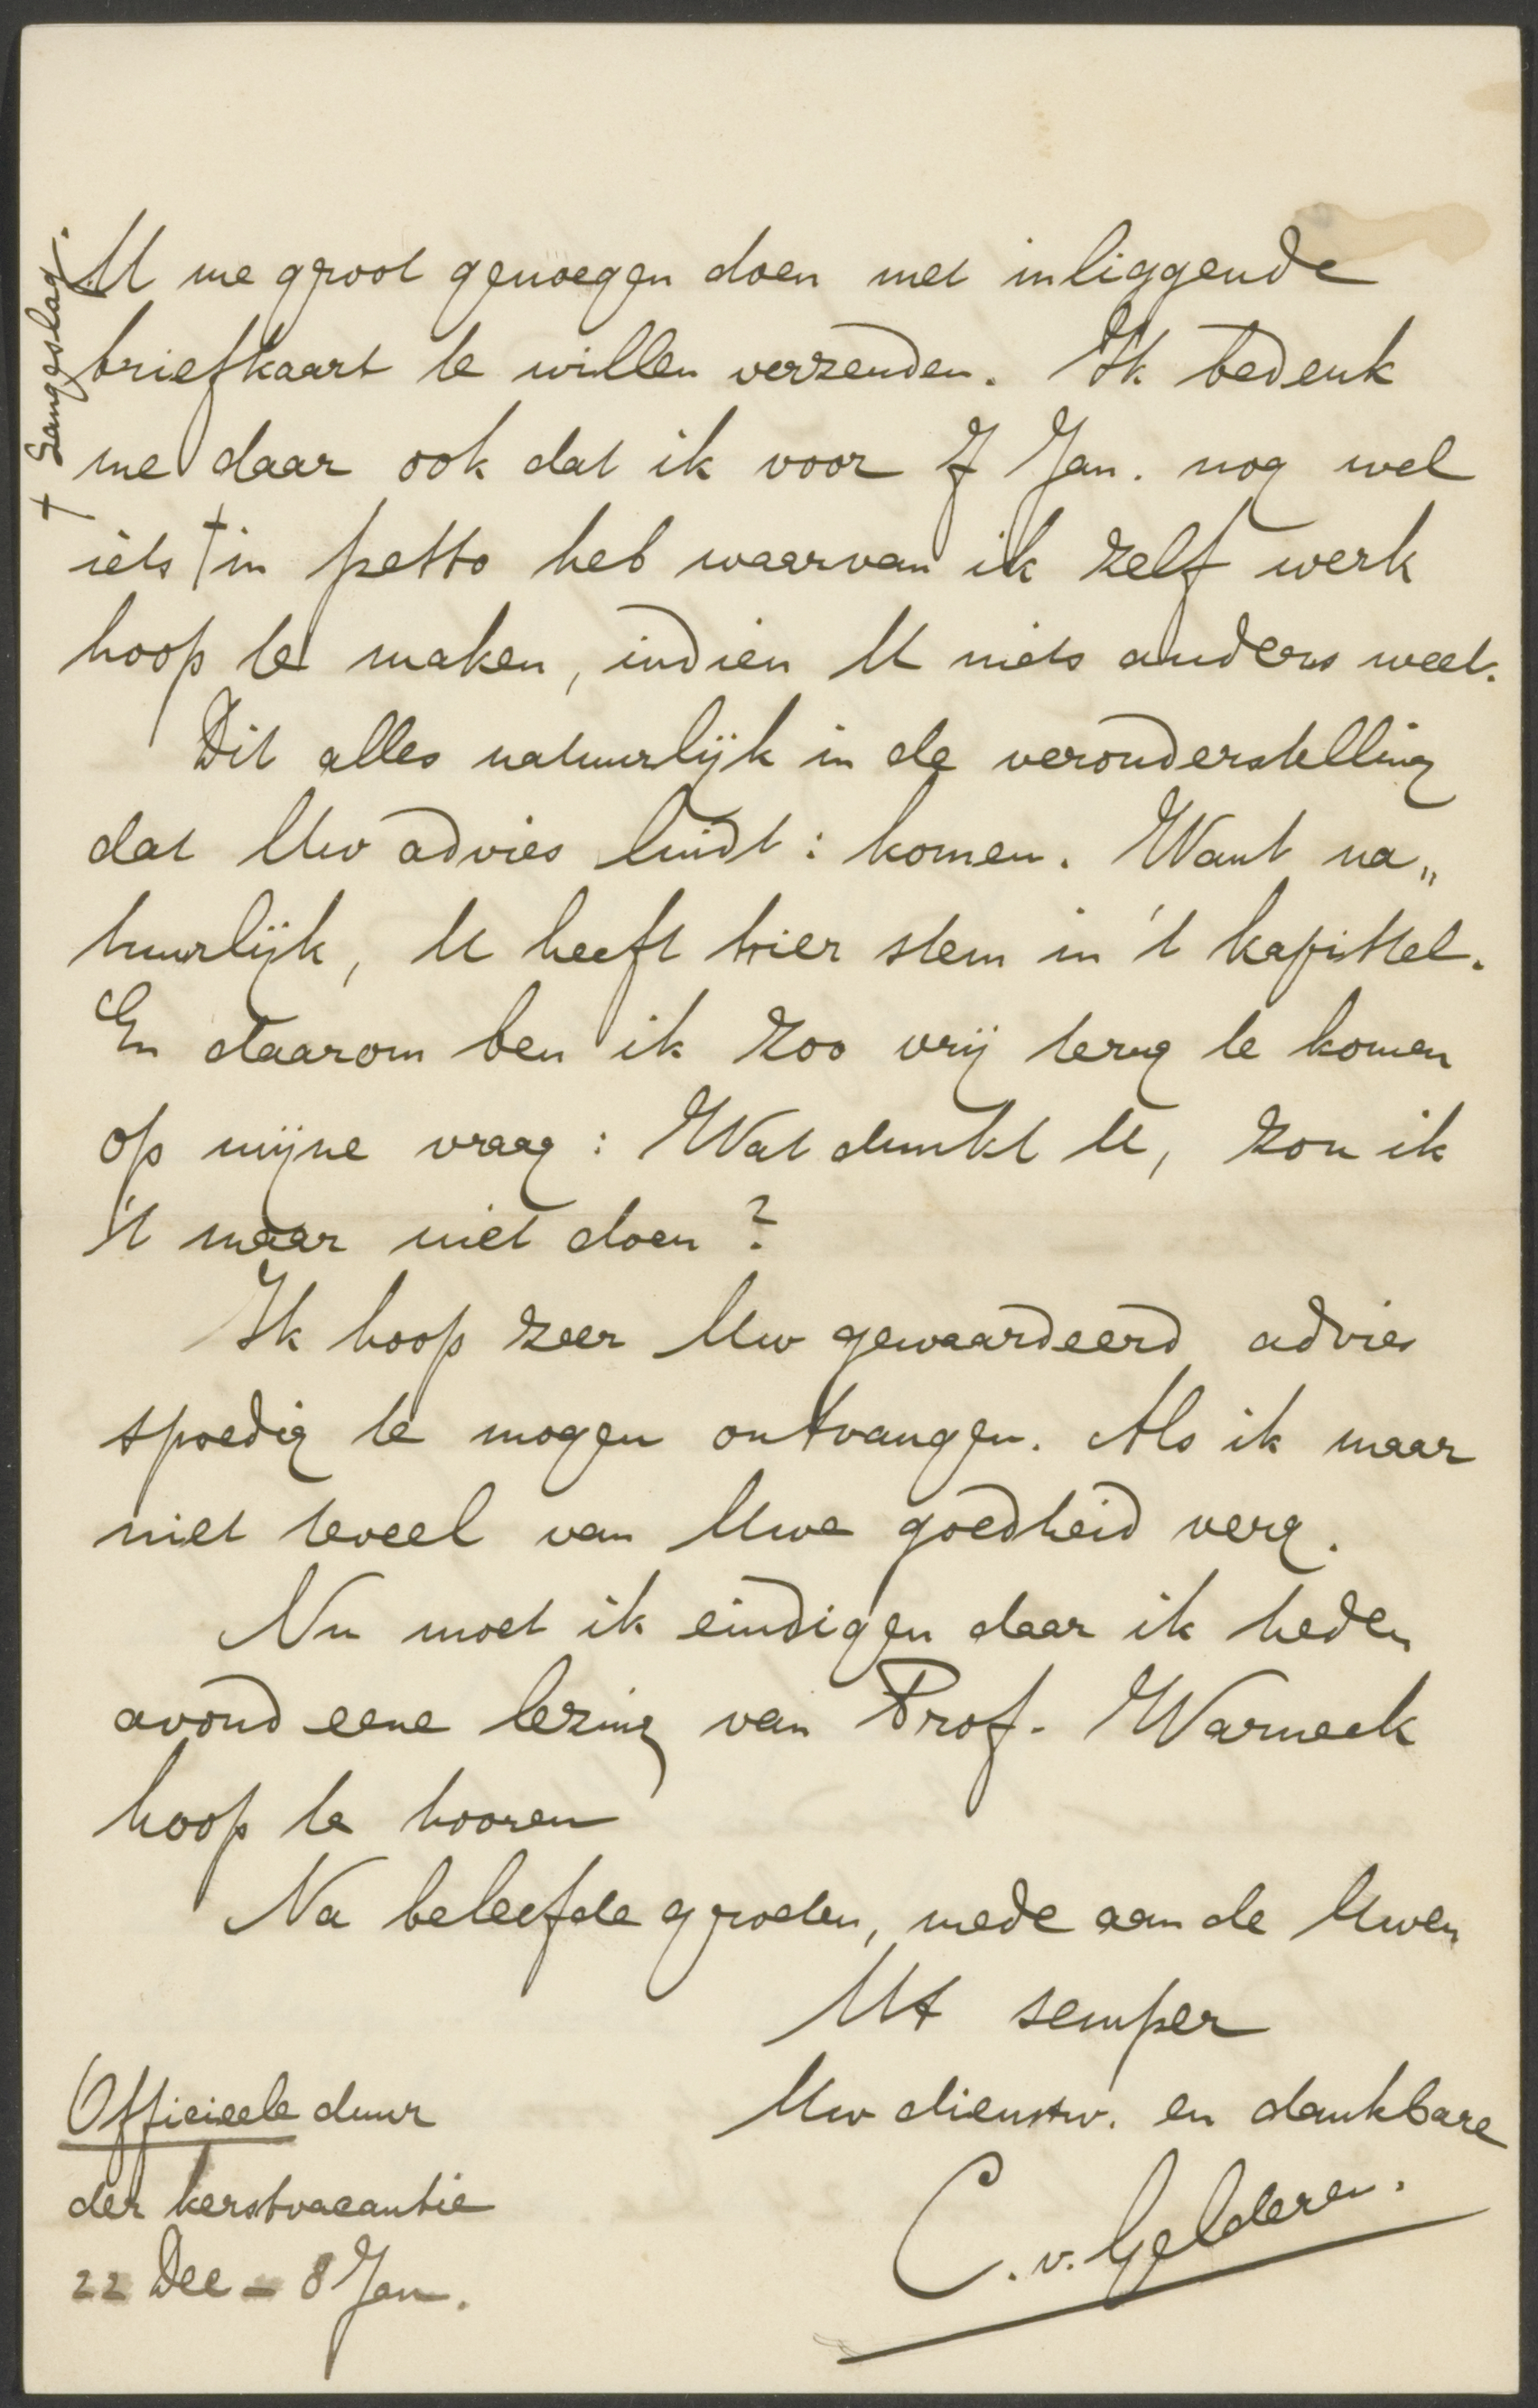 U me groot genoegen doen met inliggende
briefkaart te willen verzenden. Ik bedenk
me daar ook dat ik voor 7 Jan. nog wel
iets † in petto heb waarvan ik zelf werk
hoop te maken, indien U niets anders weet.
Dit alles natuurlijk in de veronderstelling
dat Uw advies luidt: komen. Want na„
tuurlijk, U heeft hier stem in 't kapittel.
En daarom ben ik zoo vrij terug te komen
op mijne vraag: Wat dunkt U, zou ik
't maar niet doen?
Ik hoop zeer Uw gewaardeerd advies
spoedig te mogen ontvangen. Als ik maar
niet teveel van Uwe goedheid verg.
Nu moet ik eindigen daar ik heden
avond eene lezing van Prof. Warneck
hoop te hooren
Na beleefde groeten, mede aan de Uwen
Ut semper
Uw dienstw. en dankbare
C. v. Gelderen.
Officieele duur
der kerstvacantie
22 Dec – 8 Jan.
†